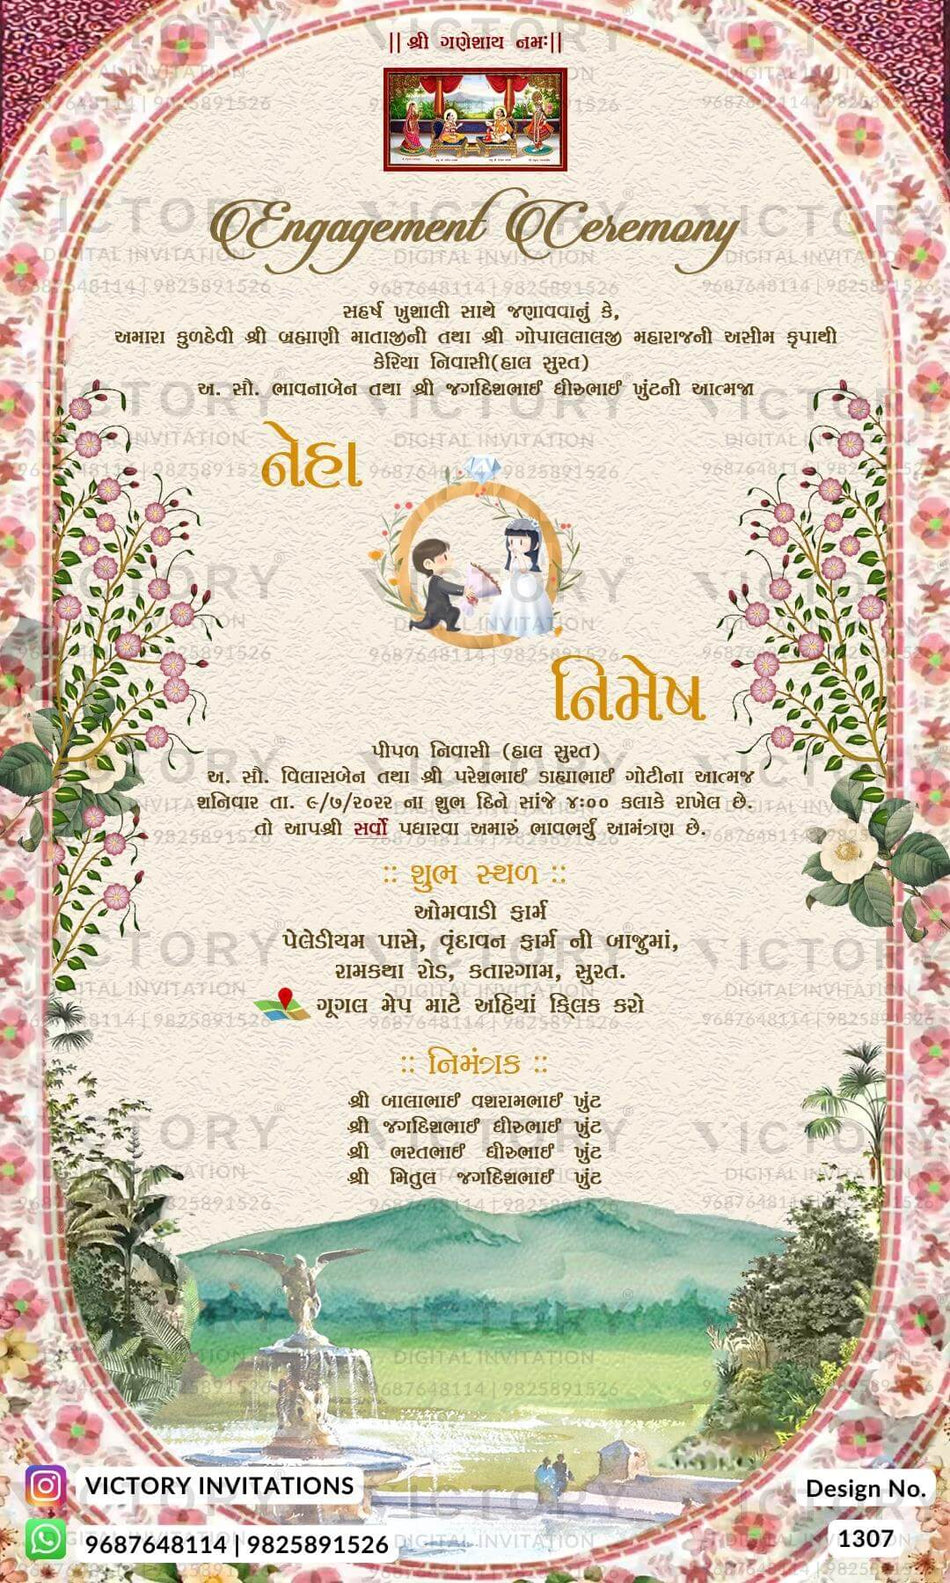 || શ્રી ગણેશાય નમઃ||
Engagement Ceremony
સહર્ષ ખુશાલી સાથે જણાવવાનું કે,
અમારા કુળદેવી શ્રી બ્રહ્માણી માતાજીની તથા શ્રી ગોપાલલાલજી મહારાજની અસીમ કૃપાથી
કેરિયા નિવાસી(હાલ સુરત)
અ. સૌ. ભાવનાબેન તથા શ્રી જગદિશભાઈ ધીરુભાઈ ખુંટની આત્મજા
નેહા
નિમેષ
પીપળ નિવાસી (હાલ સુરત)
અ. સૌ. વિલાસબેન તથા શ્રી પરેશભાઈ ડાહ્યાભાઈ ગોટીના આત્મજ
શનિવાર તા. ૯/૭/૨૦૨૨ ના શુભ દિને સાંજે ૪:૦૦ કલાકે રાખેલ છે.
તો આપશ્રી સર્વો પધારવા અમારું ભાવભર્યું આમંત્રણ છે.
:: શુભ સ્થળ ::
ઓમવાડી ફાર્મ
પેલેડીયમ પાસે, વૃંદાવન ફાર્મ ની બાજુમાં,
રામકથા રોડ, કતારગામ, સુરત.
ગૂગલ મેપ માટે અહિયાં ક્લિક કરો
:: નિમંત્રક ::
શ્રી બાલાભાઈ વશરામભાઈ ખુંટ
શ્રી જગદિશભાઈ ધીરુભાઈ ખુંટ
શ્રી ભરતભાઈ ધીરુભાઈ ખુંટ
શ્રી મિતુલ જગદિશભાઈ ખુંટ
VICTORY INVITATIONS
9687648114 | 9825891526
Design No.
1307
VICTORY
DIGITAL INVITATION
9687648114 | 9825891526